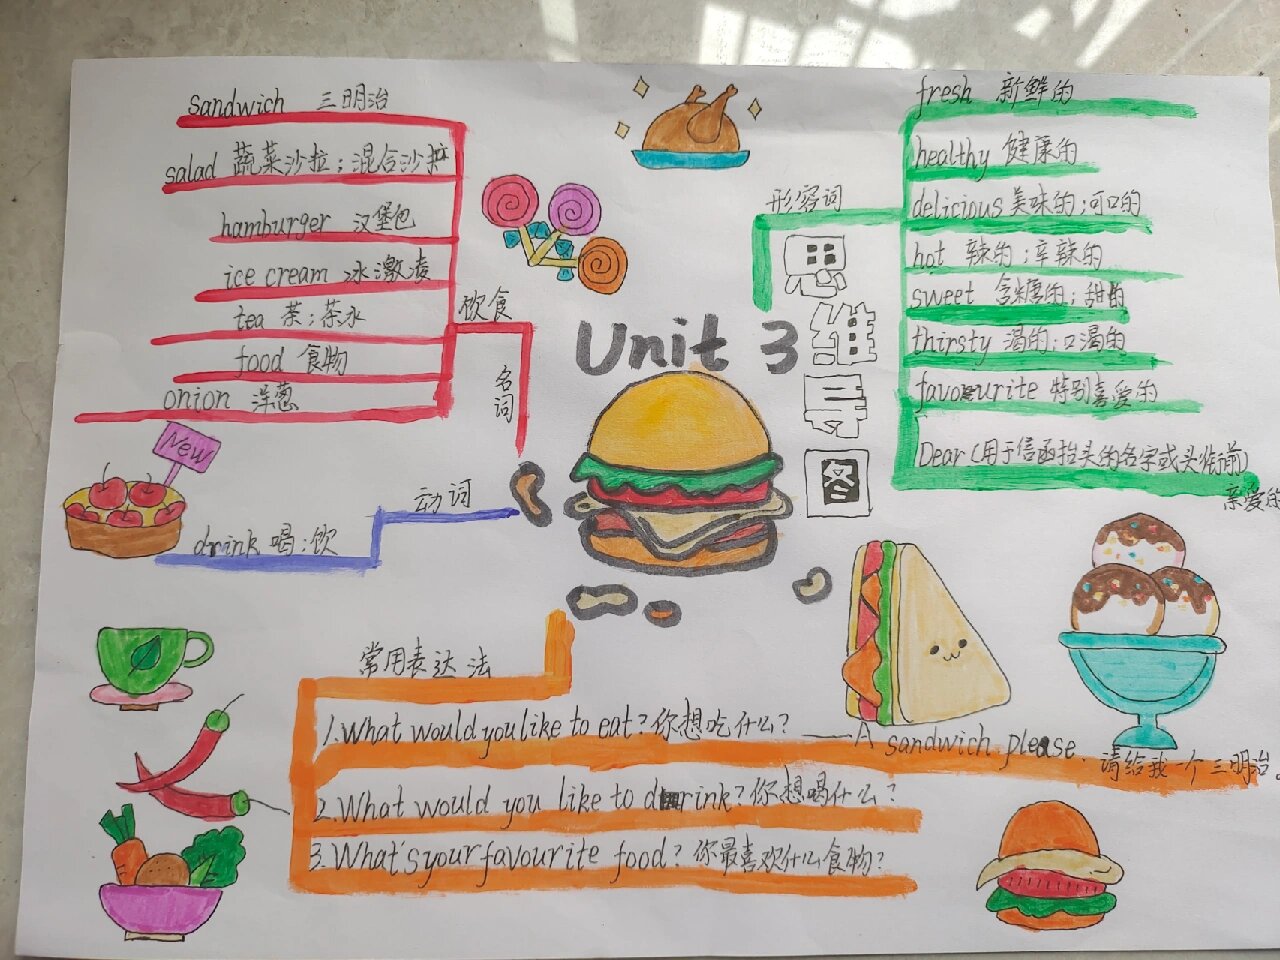 sandwich 三明治
salad 蔬菜沙拉；混合沙拉
hamburger 汉堡包
ice cream 冰激凌
tea 茶；茶水
food 食物
onion 洋葱
饮食
名词
New
动词
drink 喝；饮
Unit 3
思维导图
形容词
fresh 新鲜的
healthy 健康的
delicious 美味的；可口的
hot 辣的；辛辣的
sweet 含糖的；甜的
thirsty 渴的；口渴的
favourite 特别喜爱的
Dear(用于信函抬头的名字或头衔前)
亲爱的
常用表达法
1.What would you like to eat?你想吃什么? ——A sandwich please.请给我一个三明治。
2.What would you like to drink?你想喝什么?
3.What's your favourite food?你最喜欢什么食物?